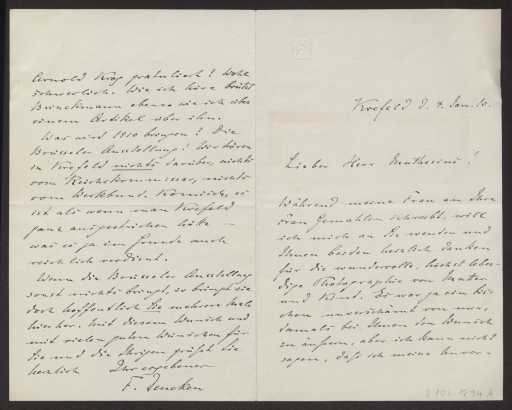 Krefeld d. 4. Jan. 10.
Lieber Herr Muthesius!
Während meine Frau an Ihre
Frau Gemahlin schreibt, will
ich mich an Sie wenden und
Ihnen beiden herzlich danken
für die wundervolle, höchst leben-
dige Photographie von Mutter
und Kind. Es war ja ein bis-
chen unverschämt von mir,
damals bei Ihnen den Wunsch
zu äußern, aber ich kann nicht
sagen, daß ich meine Unver-
Arnold Krog gratuliert? Wohl
schwerlich. Wie ich höre brütet
Brinckmann ebenso wie ich über
einem Artikel über ihn.
Was wird 1910 bringen? Die
Brüsseler Ausstellung! Wir hören
in Krefeld nichts darüber, nichts
vom Reichskommissar, nichts
vom Werkbund. Komisch, es
ist als wenn man Krefeld
ganz ausgestrichen hätte —
was es ja im Grunde auch
reichlich verdient.
Wenn die Brüsseler Ausstellung
sonst nichts bringt, so bringt sie
doch hoffentlich Sie mehrere Male
hierher. Mit diesem Wunsch und
mit vielen guten Wünschen für
Sie und die Ihrigen grüßt Sie
herzlich Ihr ergebener
F. Deneken